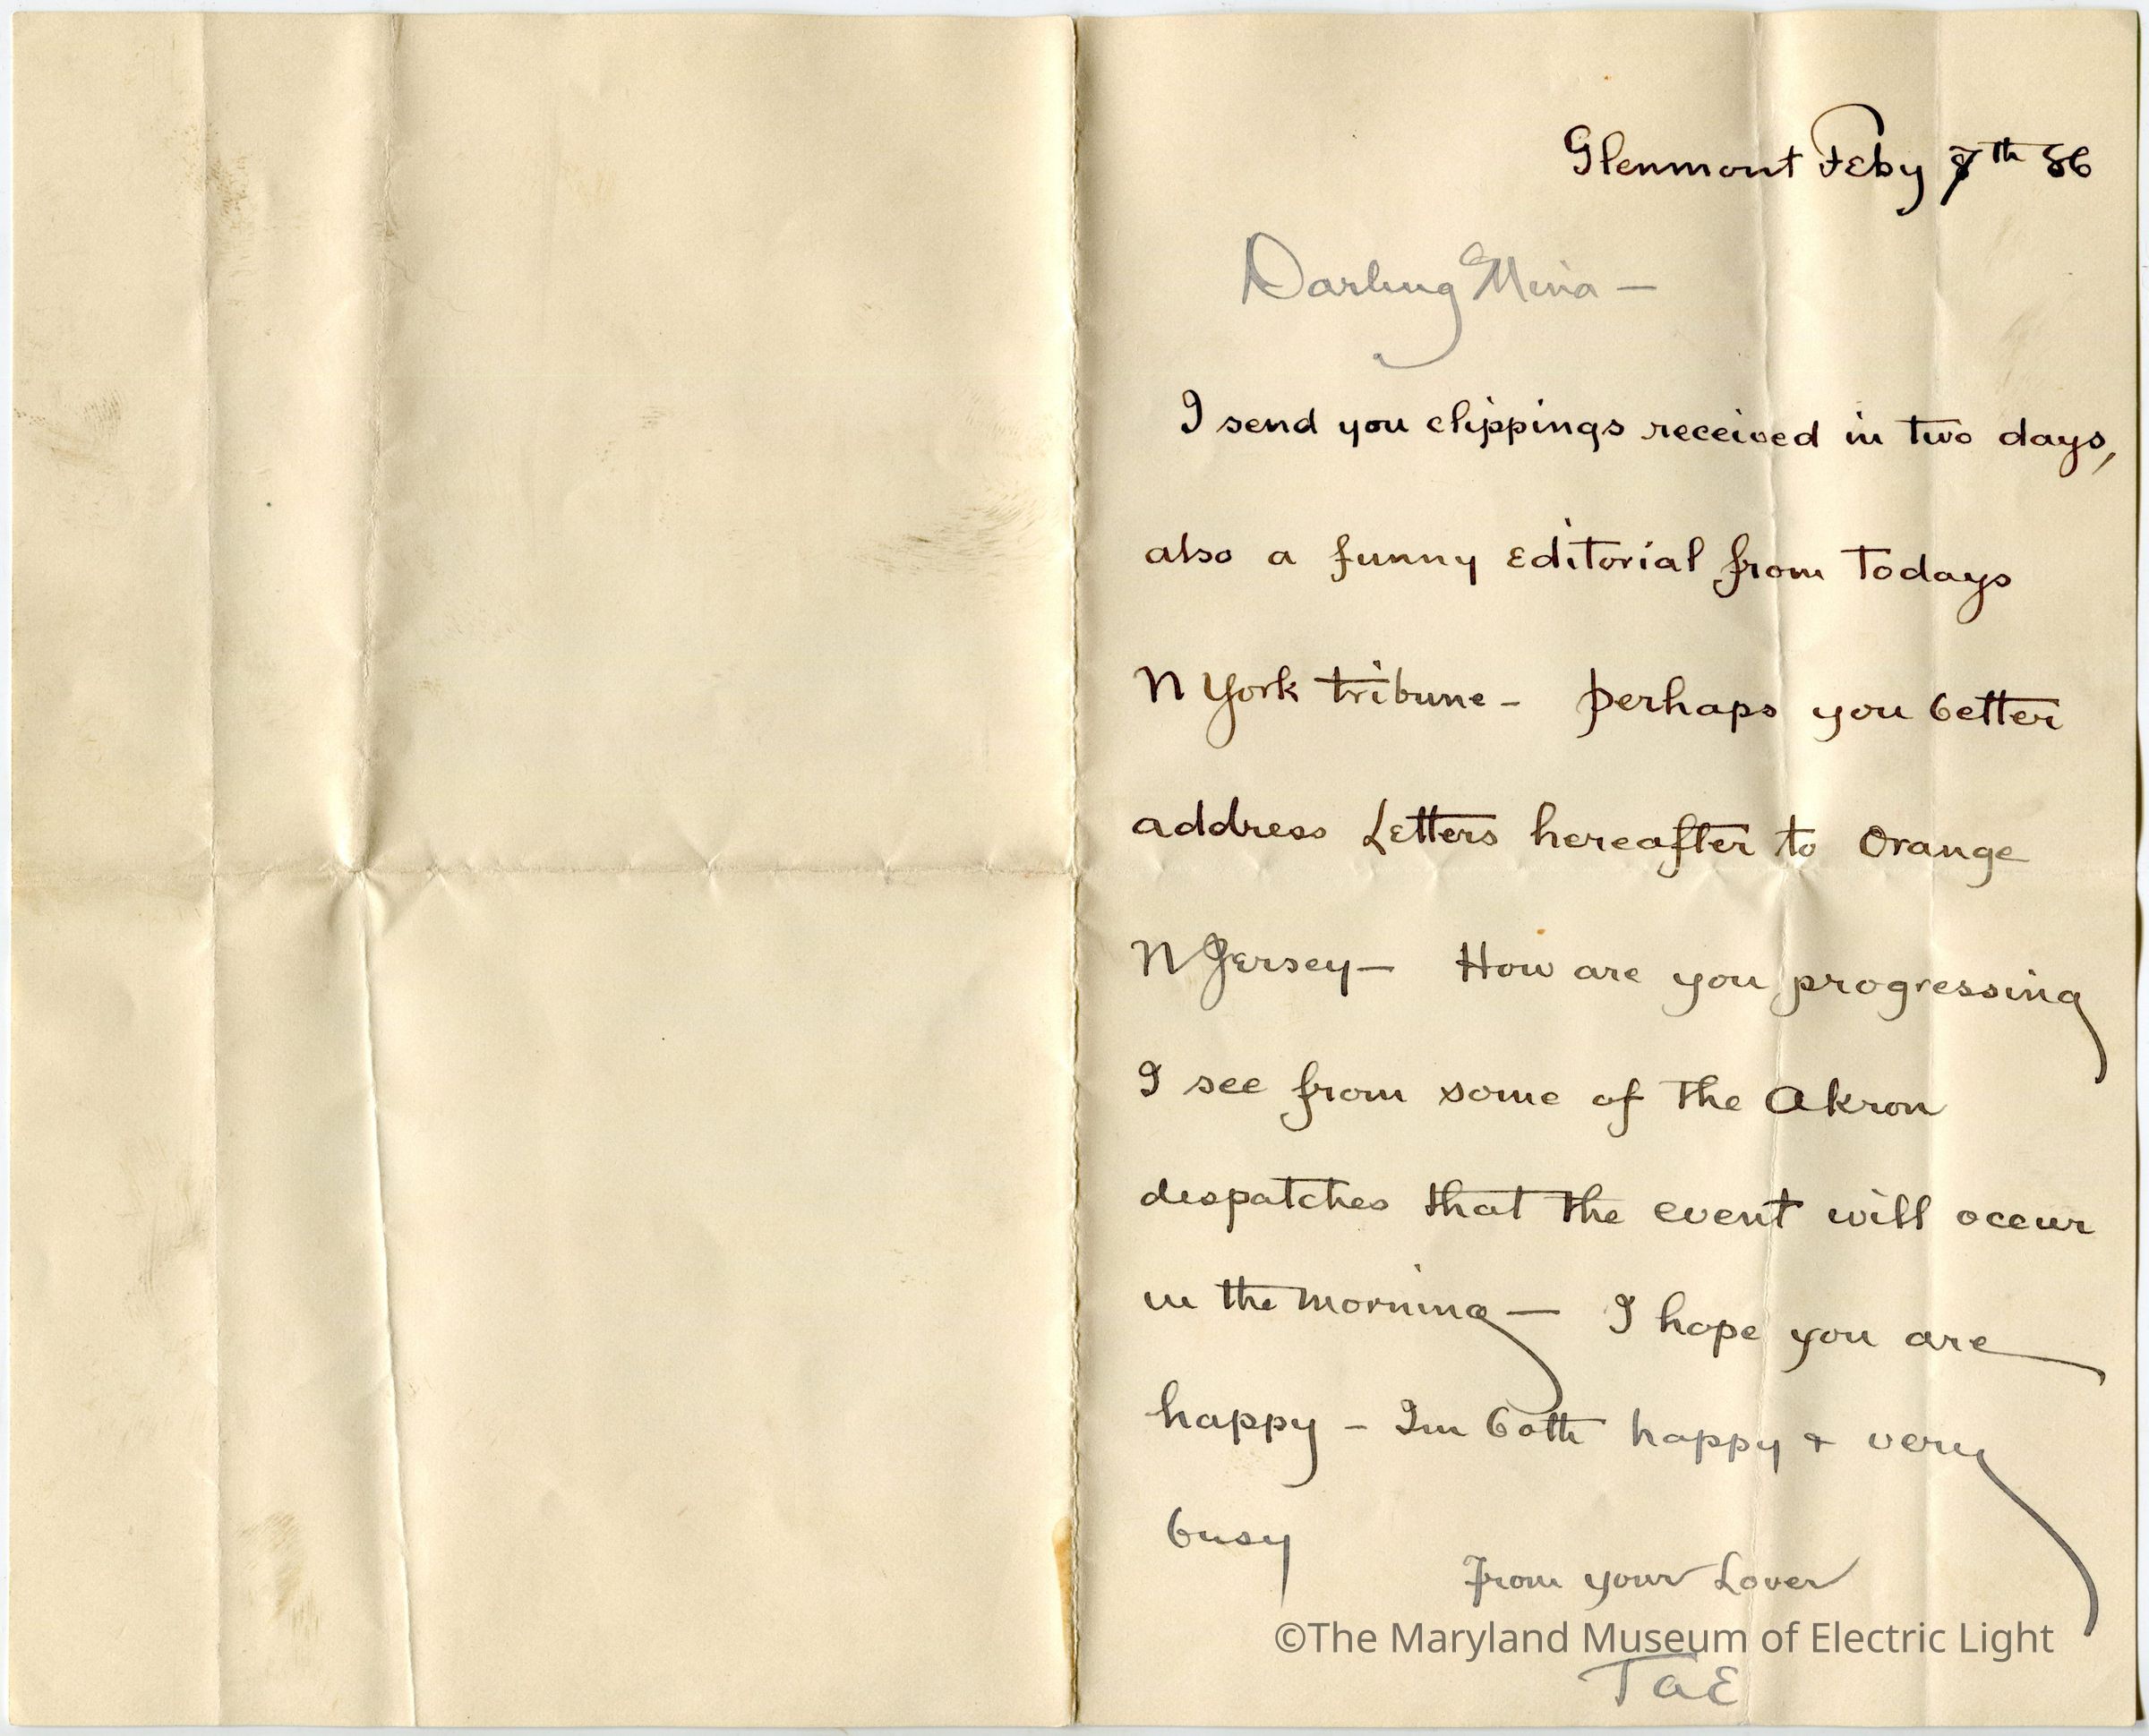 Glenmont Feby 7th 86
Darling Mina —
I send you clippings received in two days,
also a funny Editorial from Todays
N York tribune – perhaps you better
address Letters hereafter to Orange
N Jersey — How are you progressing
I see from some of the Akron
despatches that the event will occur
in the morning — I hope you are
happy – Im both happy & very
busy
From your Lover
©The Maryland Museum of Electric Light
TaE